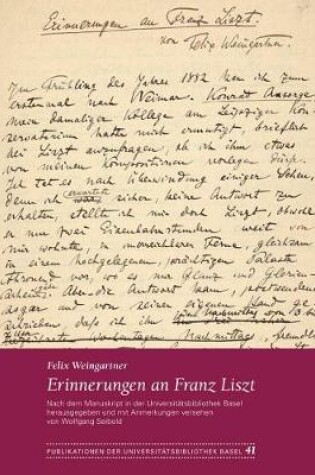 Erinnerungen an Franz Liszt.
von Felix Weingartner.
Im Frühling des Jahres 1882 kam ich zum
erstenmal nach Weimar. Konrad Ansorge
mein damaliger Kollege am Leipziger Kon-
servatorium hatte mich ermutigt, brieflich
bei Liszt anzufragen, ob ich ihm etwas
von meinen Kompositionen vorlegen dürfe.
Ich tat es nach Überwindung einiger Scheu,
denn ich erwartete sicher, keine Antwort zu
erhalten, stellte ich mir doch Liszt, obwohl
er nur zwei Eisenbahnstunden weit von
mir wohnte, in unerreichbarer Ferne, gleichsam
in einem hochgelegenen, prächtigen Palaste
thronend vor, wo es nur Glanz und Glorien-
schein gab. Aber die Antwort kam, postwendend
sogar und von seiner eigenen Hand ge-
schrieben, dass ich ihm
Wochentagen Nachmittags, freundlich
Felix Weingartner
Erinnerungen an Franz Liszt
Nach dem Manuskript in der Universitätsbibliothek Basel
herausgegeben und mit Anmerkungen versehen
von Wolfgang Seibold
PUBLIKATIONEN DER UNIVERSITÄTSBIBLIOTHEK BASEL 41